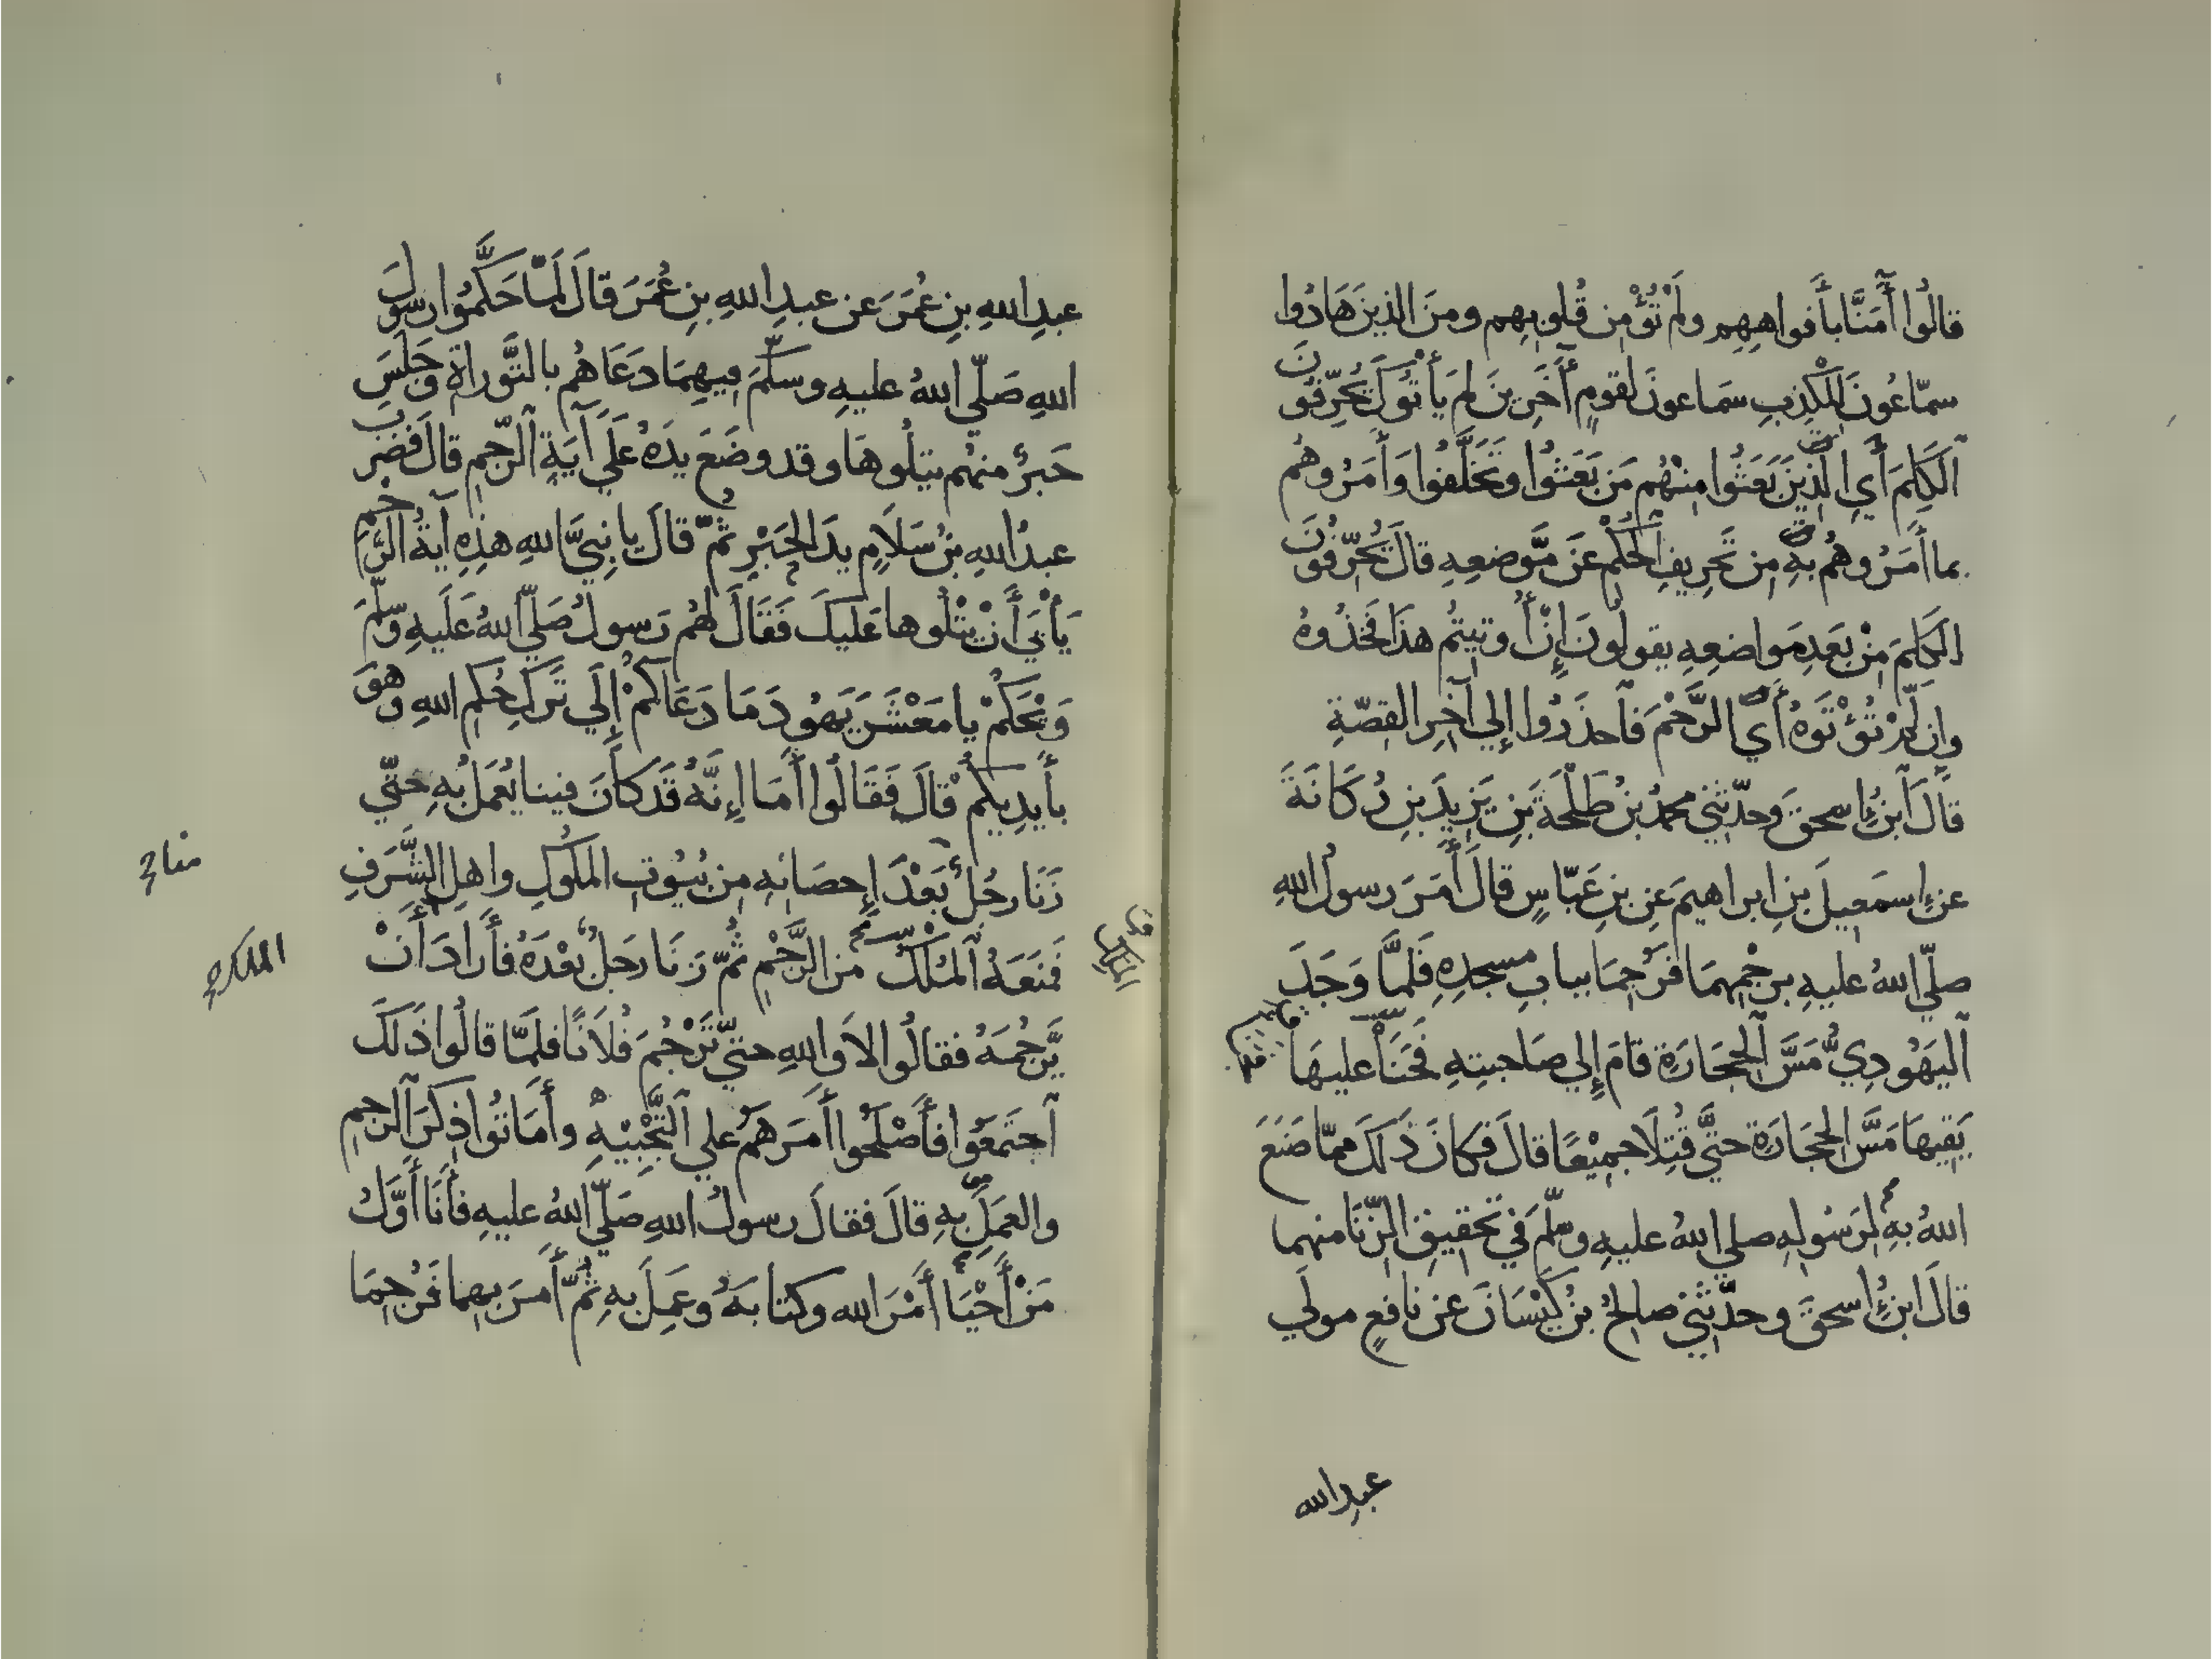 قالُوا أٓمَنَّا بأَفواهِهِم ولَمْ تُؤْمِن قُلوبهِم ومنَ الذينَ هَادُوا
سمّاعُونَ لِلْكَذِبِ سَماعونَ لقومٍ أٓخَرِينَ لم يَأْتوكَ يُحَرِّفُونَ
ٱلكَلِمَ أَيِ الَّذِينَ بَعَثُوا مِنْهُم مَن بَعَثُوا وتَخَلَّفُوا وَأَمَرُوهُم
بما أَمَرُوهُم بِهِ مِن تَحرِيفِ الحُكْمِ عَن مَّوضعِهِ قالَ يُحَرِّفُونَ
الكَلِمَ مِنْ بَعدِ مَواضعِهِ يقولُونَ إِنْ أُوتيتُم هذَا فَخُذُوهُ
وإن لَمْ تُؤْتَوهُ أَي الرَّجْمَ فَٱحذَرُوا إِلي آخِرِ القِصّةِ
قالَ ٱبنُ إسحقَ وحدّثني محمدُ بنُ طَلْحَةَ بنِ يَزِيدَ بنِ رُكَانَةَ
عن إسمَعيلَ بنِ ابراهيمَ عنِ بنِ عَبّاسٍ قالَ أَمَرَ رسولُ اللهِ
صلّي اللهُ عليهِ برجْمِهِمَا فَرُجِمَا ببابِ مسجدِهِ فَلمَّا وَجَدَ
ٱليَهُودِيُّ مَسَّ ٱلحِجَارَةِ قامَ إِلي صَاحبتِهِ فَحَنَأَ عليهَا
يَقِيهَا مَسَّ الحِجَارَةِ حتَّي قُتِلَا جميْعًا قالَ فكانَ ذَلكَ ممّا صَنَعَ
اللهُ بهِ لِرَسُولِهِ صلي اللهُ عليهِ وسلّمَ في تَحقيقِ الزِّنَا منهما
قالَ ابنُ إسحقَ وحدّثني صالحُ بنُ كَيْسَانَ عن نافعٍ مولَي
عبدالله
عبدِ اللهِ بنِ عُمَرَ عن عبدِ اللهِ بنِ عُمَرَ قالَ لَمّا حَكَّمُوا رسُولَ
اللهِ صَلّي اللهُ عليهِ وسلّمَ فيهِمَا دَعَاهُم بالتَّوراةِ وجَلَسَ
حَبرٌ منهُم يتلُوهَا وقد وضَعَ يدَهُ عَلَي آيَةِ ٱلرّجمِ قالَ فَضَرَبَ
عبدُ اللهِ بنُ سَلَامٍ يدَ الحَبْرِ ثمّ قالَ يا نبيَّ اللهِ هذِهِ آيةُ الرَّجْمِ
يَأْبَي أَنْ يَتْلُوها عَليكَ فَقَالَ لهُم رسولُ صَلّي اللهُ عَلَيهِ وسلّمَ
وَيْحَكُمْ يا مَعْشَرَ يَهُودَ مَا دَعَاكُمْ إِلَي تَركِ حُكمِ اللهِ وهوَ
بأَيدِيكُمْ قالَ فَقَالُوا أَمَا إِنَّهُ قَد كانَ فينا يُعمَلُ بهِ حتّي
زَنَا رجُلٌ بَعْدَ إِحصَانِهِ مِن بُيُوتِ الملُوكِ واهلِ الشَّرَفِ
فَمنَعَهُ ٱلمَلِكُ مِنَ الرَّجْمِ ثُمّ زَنَا رجلٌ بَعْدَهُ فأَرادَ أَنْ
يَّرْجُمَهُ فقالُوا لاَ واللهِ حتّي تَرْجُمَ فُلَانًا فلَمّا قالُوا ذَلكَ
ٱجتَمَعُوا فأَصْلَحُوا أَمرَهم علي ٱلتَّجْبِيْهِ وأَمَاتُوا ذِكرَ ٱلرجمِ
والعَملِ بهِ قالَ فقالَ رسولُ اللهِ صَلّي اللهُ عليهِ فأَنَا أَوَّلُ
مَنْ أَحْيَا أَمْرَ الله وكتابَهُ وعَمِلَ بهِ ثمّ أَمرَ بهما فَرُجِمَا
الملك